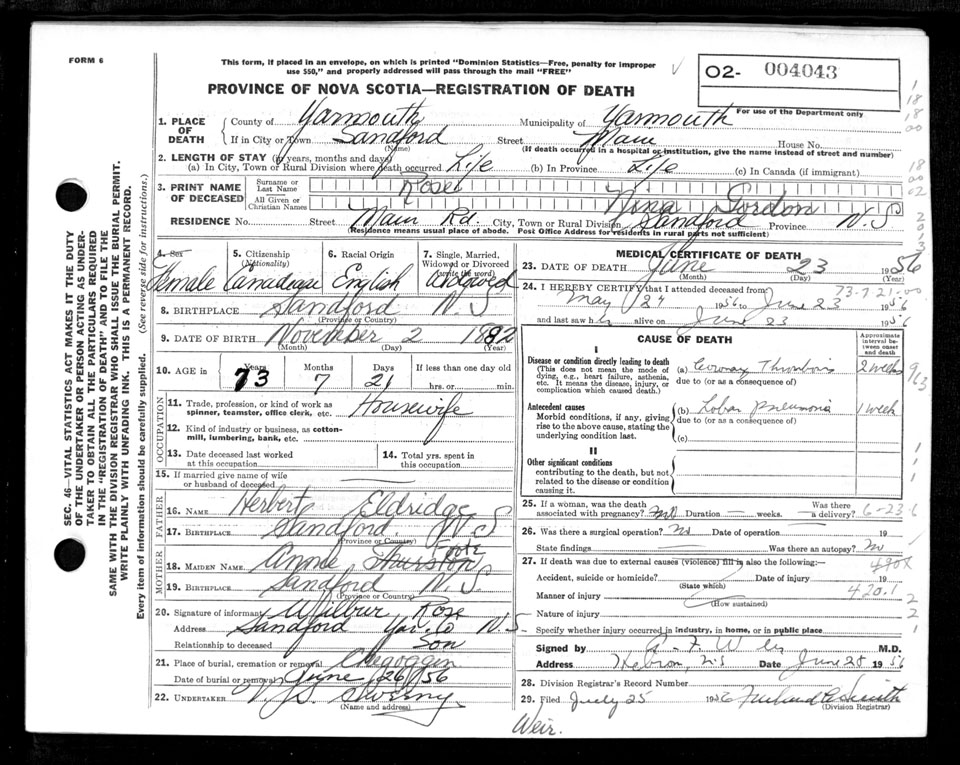 FORM 6
This form, if placed in an envelope, on which is printed "Dominion Statistics—Free, penalty for improper
use $50," and properly addressed will pass through the mail "FREE"
PROVINCE OF NOVA SCOTIA—REGISTRATION OF DEATH
O2- 004043
For use of the Department only
1. PLACE OF DEATH
County of Yarmouth Municipality of Yarmouth
If in City or Town Sandford Street Main House No.
(Name) (If death occurred in a hospital or institution, give the name instead of street and number)
2. LENGTH OF STAY (in years, months and days)
(a) In City, Town or Rural Division where death occurred Life (b) In Province Life (c) In Canada (if immigrant)
3. PRINT NAME OF DECEASED
Surname or Last Name Rose
All Given or Christian Names Nina Gordon
RESIDENCE No. Street Main Rd. City, Town or Rural Division Sandford Province N.S
(Residence means usual place of abode. Post Office Address for residents in rural parts not sufficient)
4. Sex
Female
5. Citizenship
(Nationality)
Canadian
6. Racial Origin
English
7. Single, Married,
Widowed or Divorced
(write the word)
Widowed
8. BIRTHPLACE Sandford N.S
(Province or Country)
9. DATE OF BIRTH November 2 1882
(Month) (Day) (Year)
10. AGE in Years Months Days If less than one day old
73 7 21 hrs. or min.
OCCUPATION
11. Trade, profession, or kind of work as
spinner, teamster, office clerk, etc. Housewife
12. Kind of industry or business, as cotton-
mill, lumbering, bank, etc.
13. Date deceased last worked
at this occupation
14. Total yrs. spent in
this occupation
15. If married give name of wife
or husband of deceased
FATHER
16. NAME Herbert Eldridge
17. BIRTHPLACE Sandford N S
(Province or Country)
MOTHER
18. MAIDEN NAME Annie
19. BIRTHPLACE Sandford N. S.
(Province or Country)
20. Signature of informant Wilbur Rose
Address Sandford Yar. Co N.S
Relationship to deceased Son
21. Place of burial, cremation or removal Chegoggin
Date of burial or removal June 26/56
22. UNDERTAKER V. S. Sweeny
(Name and address)
MEDICAL CERTIFICATE OF DEATH
23. DATE OF DEATH June 23 1956
(Month) (Day) (Year)
73-7-21-00
24. I HEREBY CERTIFY that I attended deceased from:
May 27 1956 to June 23 1956
and last saw her alive on June 23 1956
CAUSE OF DEATH
Approximate interval between onset and death
I
Disease or condition directly leading to death
(This does not mean the mode of
dying, e.g., heart failure, asthenia,
etc. It means the disease, injury, or
complication which caused death.)
(a) Coronary Thrombosis 2 weeks
due to (or as a consequence of)
Antecedent causes
Morbid conditions, if any, giving
rise to the above cause, stating the
underlying condition last.
(b) Lobar pneumonia 1 week
due to (or as a consequence of)
(c)
II
Other significant conditions
contributing to the death, but not
related to the disease or condition
causing it.
25. If a woman, was the death
associated with pregnancy? no Duration weeks. Was there
a delivery? 6-23-6
26. Was there a surgical operation? No Date of operation 19
State findings Was there an autopsy? no
27. If death was due to external causes (violence) fill in also the following:—
Accident, suicide or homicide? Date of injury 19
(State which)
Manner of injury 420.1
(How sustained)
Nature of injury
Specify whether injury occurred in industry, in home, or in public place
Signed by M.D.
Address Hebron, N.S Date June 28 1956
28. Division Registrar's Record Number
29. Filed July 25 1956
(Division Registrar)
Weir.
SEC. 46—VITAL STATISTICS ACT MAKES IT THE DUTY
OF THE UNDERTAKER OR PERSON ACTING AS UNDER-
TAKER TO OBTAIN ALL THE PARTICULARS REQUIRED
IN THE "REGISTRATION OF DEATH" AND TO FILE THE
SAME WITH THE DIVISION REGISTRAR WHO SHALL ISSUE THE BURIAL PERMIT.
WRITE PLAINLY WITH UNFADING INK. THIS IS A PERMANENT RECORD.
Every item of information should be carefully supplied. (See reverse side for instructions.)